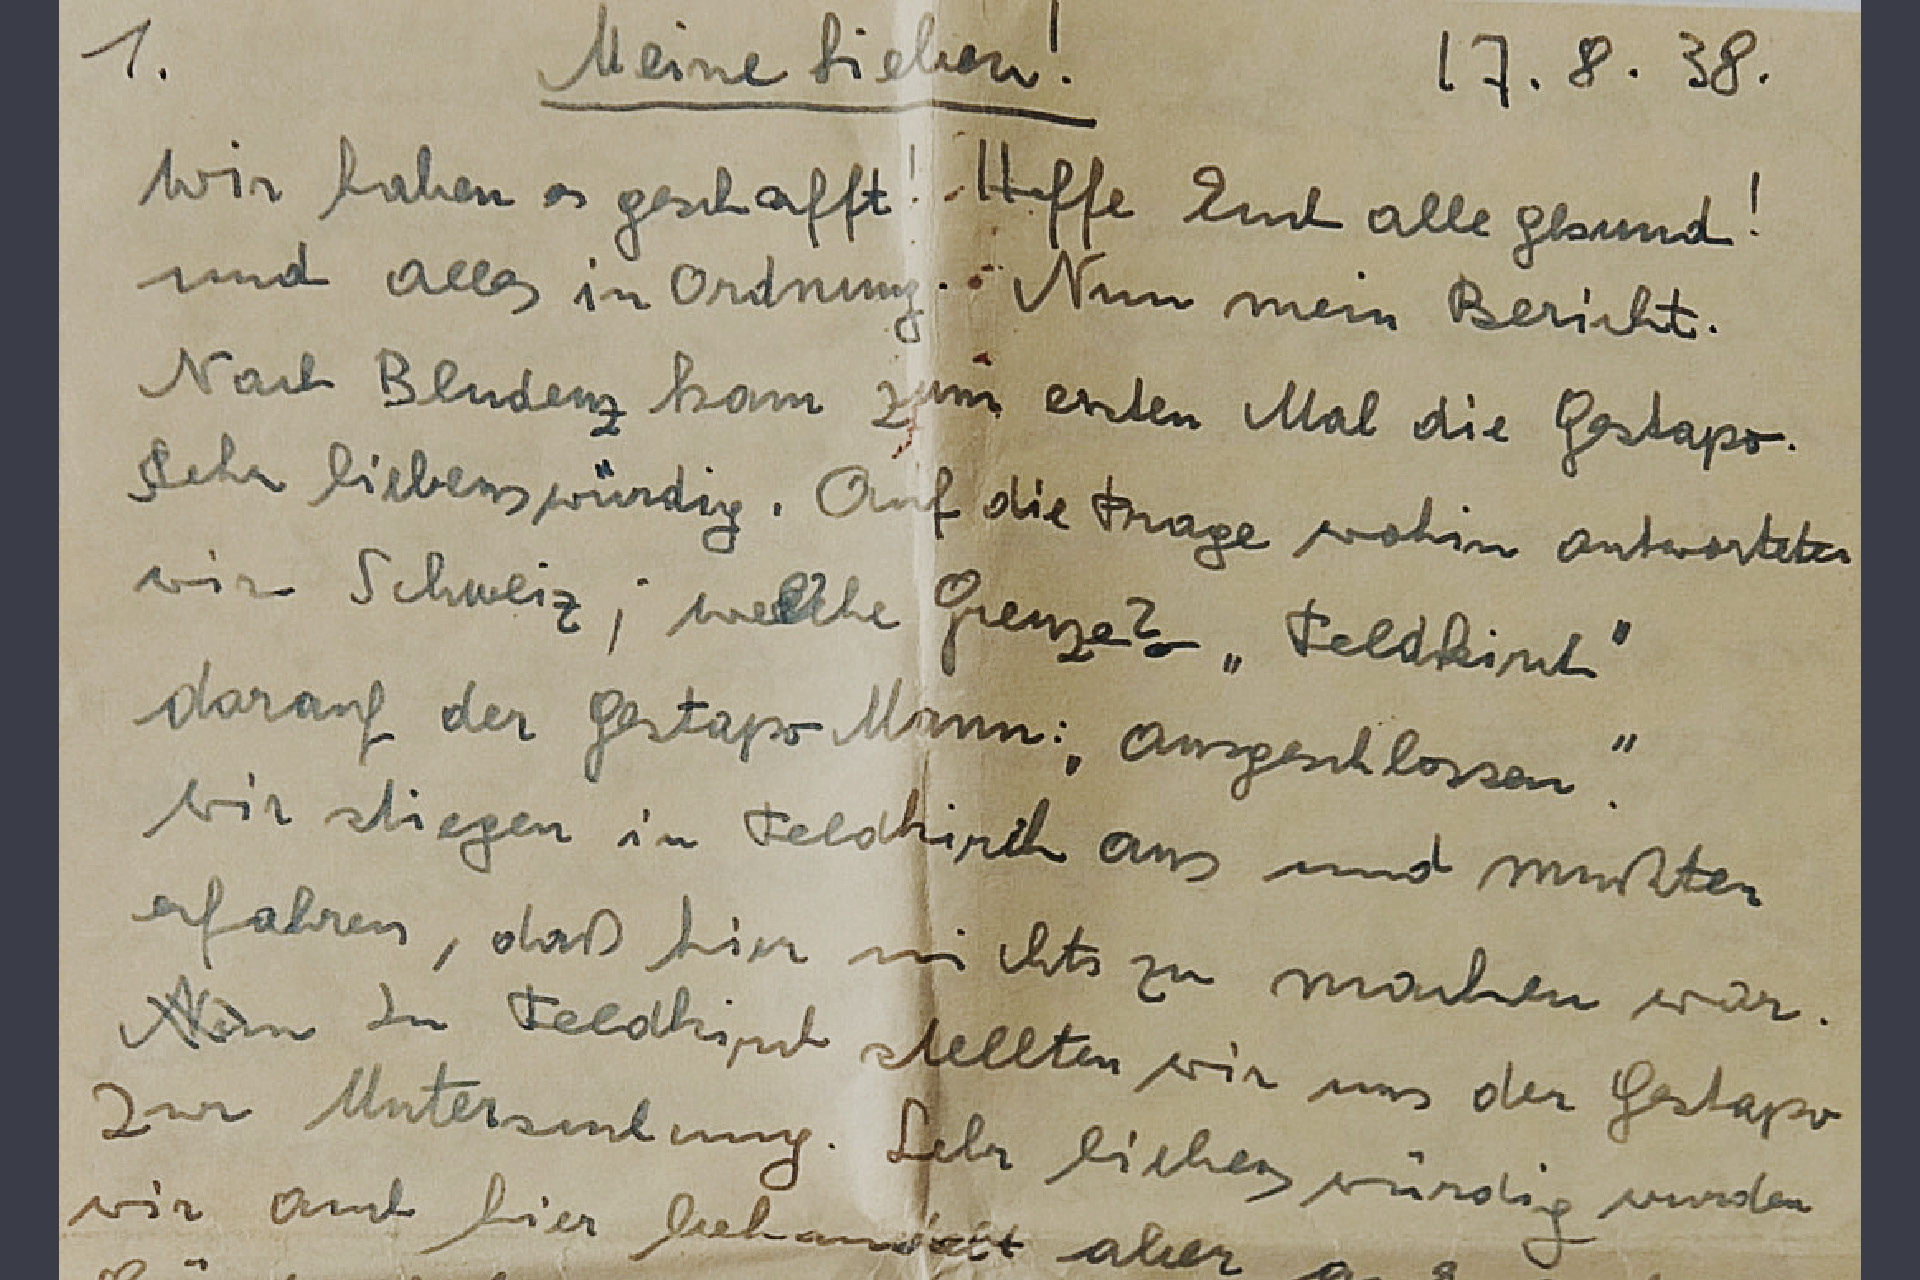 1. Meine Lieben! 17. 8. 38.
wir haben es geschafft! Hoffe Euch alle gesund!
und alles in Ordnung. Nun mein Bericht.
Nach Bludenz kam zum ersten Mal die Gestapo.
Sehr liebenswürdig. Auf die Frage wohin antworteten
wir Schweiz; welche Grenze? „Feldkirch"
darauf der Gestapo Mann: „ausgeschlossen".
wir stiegen in Feldkirch aus und mußten
erfahren, daß hier nichts zu machen war.
In Feldkirch stellten wir uns der Gestapo
zur Untersuchung. Sehr liebenswürdig wurden
wir auch hier behandelt aber